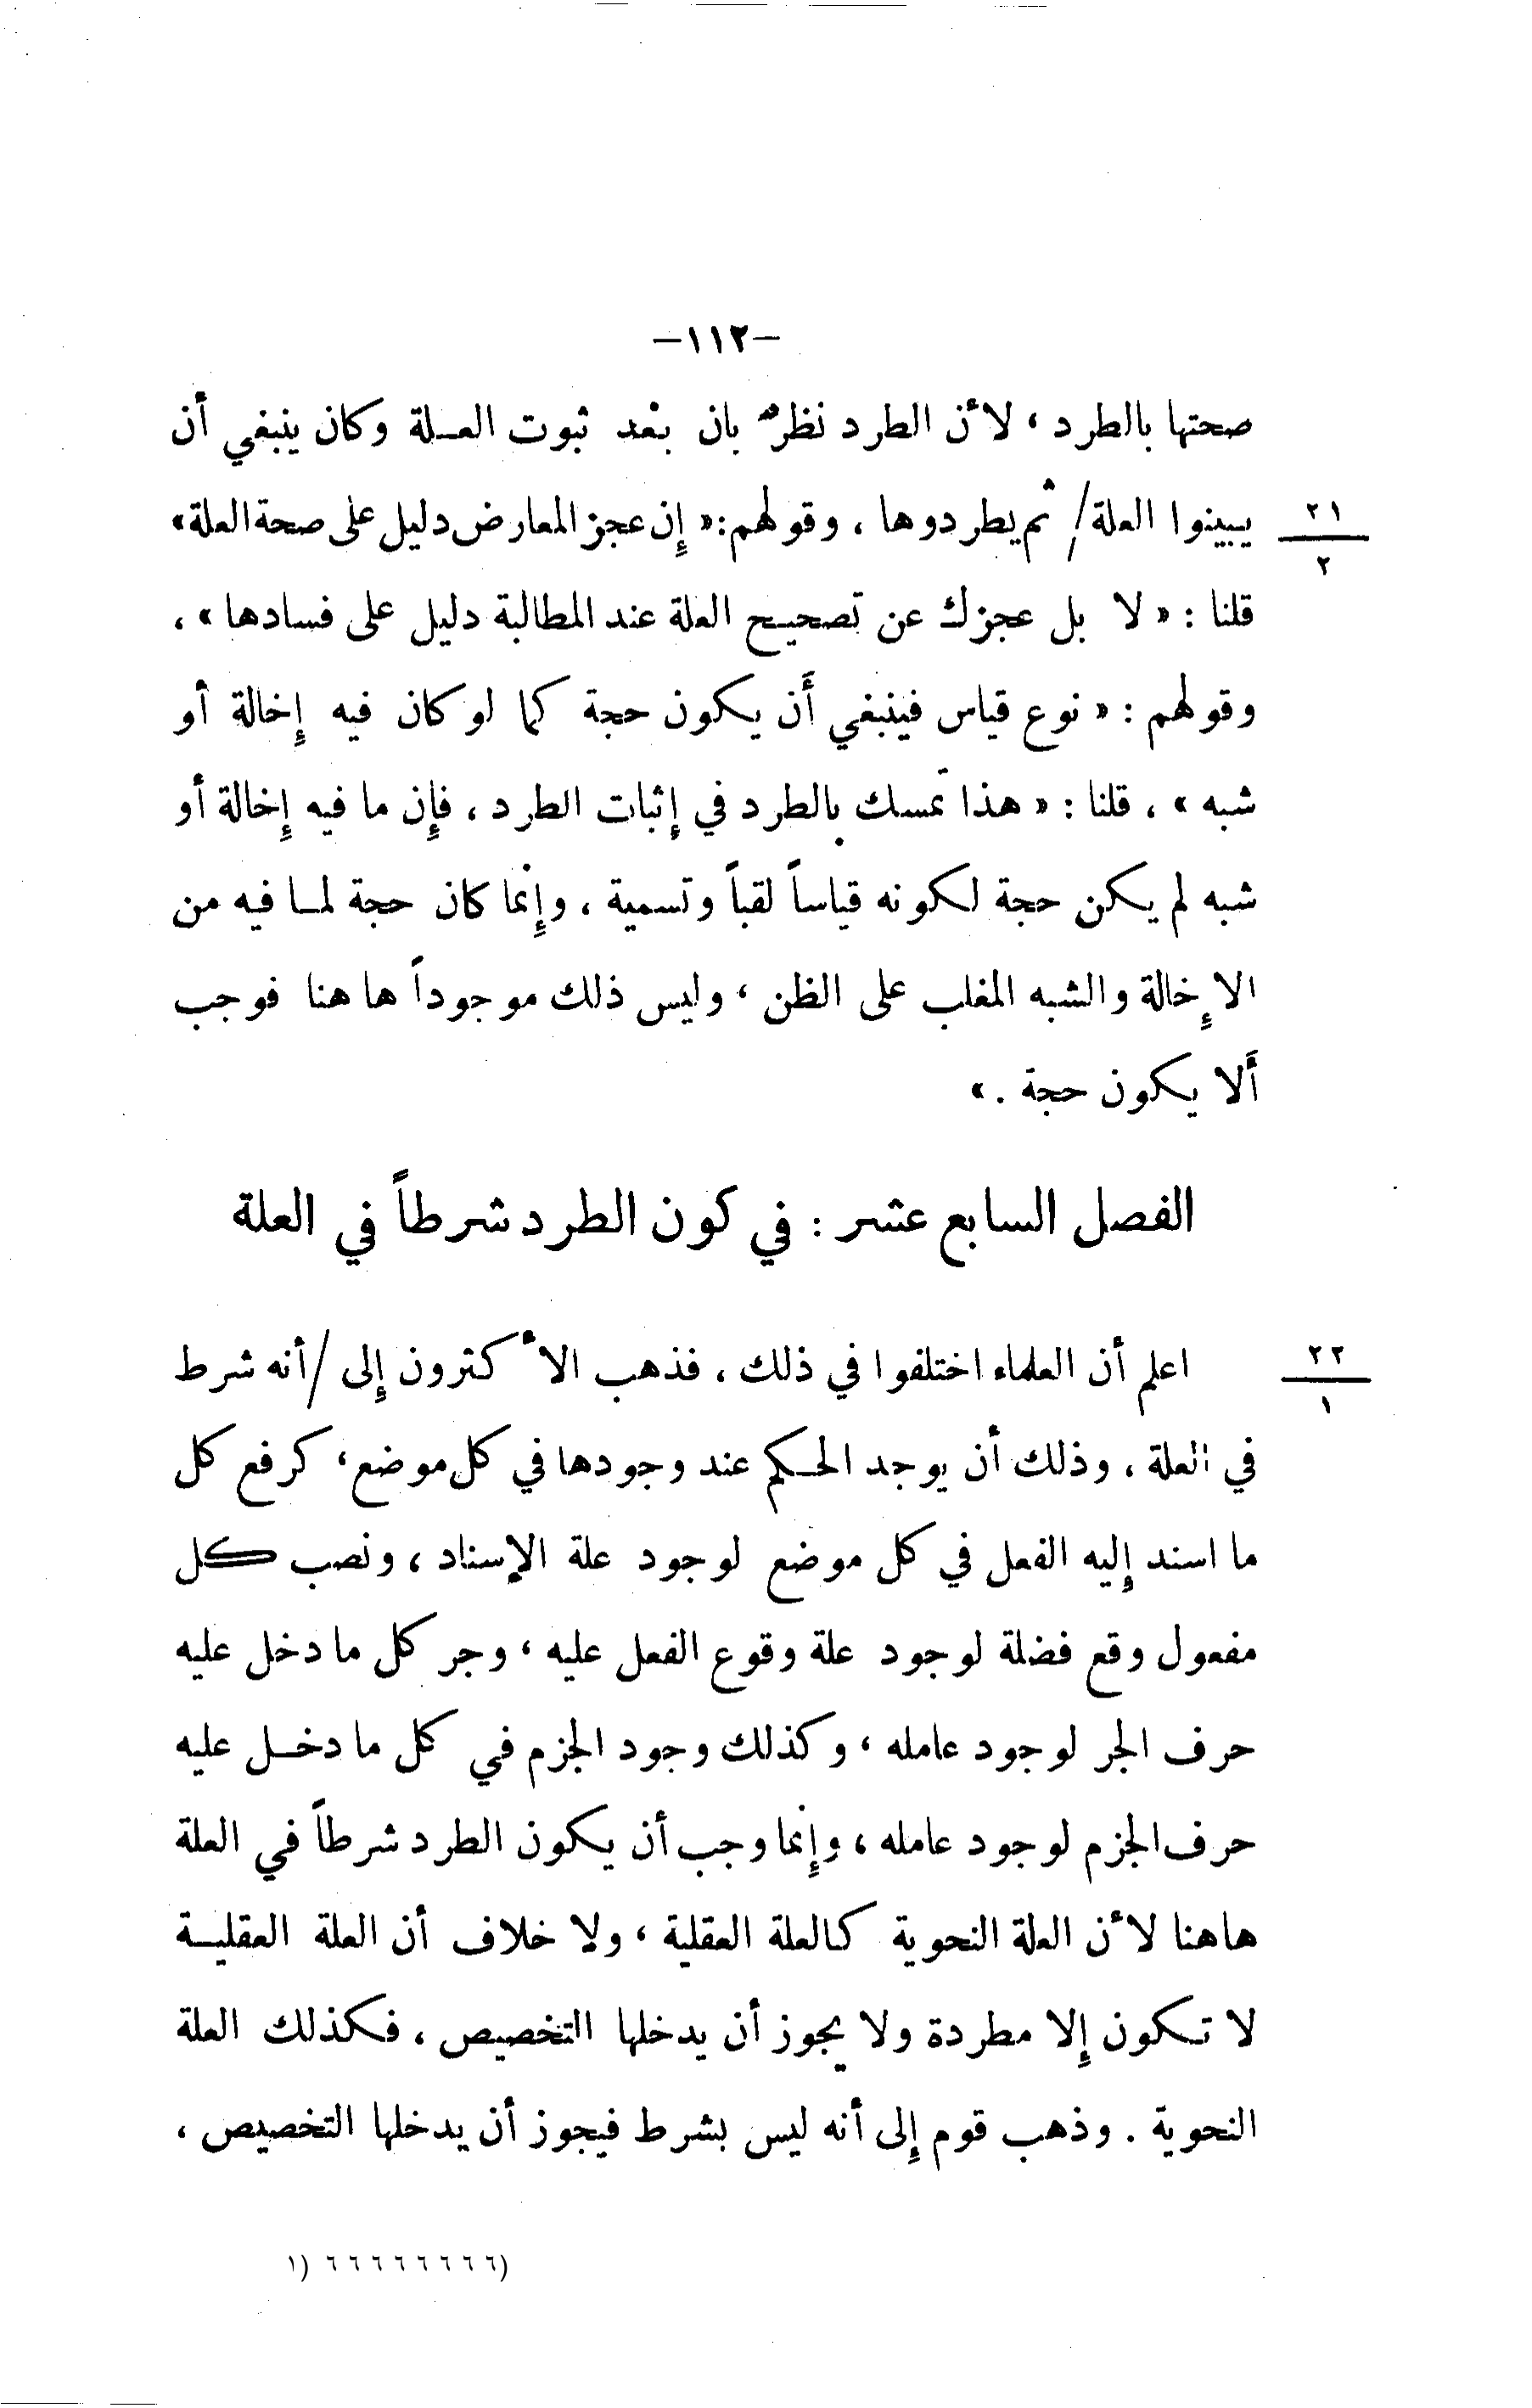 -١١٢-
صحتها بالطرد ، لأن الطرد نظرٌ بان بعْد ثبوت العـلة وكان ينبغي أن
يبينوا العلة/ ثم يطردوها ، وقولهم : « إن عجز المعارض دليل على صحة العلة »
٢١
٢
قلنا : « لا بل عجزك عن تصحيح العلة عند المطالبة دليل على فسادها » ،
وقولهم : « نوع قياس فينبغي أن يكون حجة كما لو كان فيه إخالة أو
شبه » ، قلنا : « هذا تمسك بالطرد في إثبات الطرد ، فإن ما فيه إخالة أو
شبه لم يكن حجة لكونه قياساً لقباً وتسمية ، وإنما كان حجة لمـا فيه من
الإخالة والشبه المغلب على الظن ، وليس ذلك موجوداً ها هنا فوجب
ألا يكون حجة . »
الفصل السابع عشر : في كون الطرد شرطاً في العلة
اعلم أن العلماء اختلفوا في ذلك ، فذهب الأكثرون إلى /أنه شرط
٢٢
١
في العلة ، وذلك أن يوجد الحـكم عند وجودها في كل موضع ، كرفع كل
ما اسند إليه الفعل في كل موضع لوجود علة الإسناد ، ونصب كل
مفعول وقع فضلة لوجود علة وقوع الفعل عليه ، وجر كل ما دخل عليه
حرف الجر لوجود عامله ، وكذلك وجود الجزم في كل ما دخـل عليه
حرف الجزم لوجود عامله ، وإنما وجب أن يكون الطرد شرطاً في العلة
هاهنا لأن العلة النحوية كالعلة العقلية ، ولا خلاف أن العلة العقليـة
لا تكون إلا مطردة ولا يجوز أن يدخلها التخصيص ، فكذلك العلة
النحوية . وذهب قوم إلى أنه ليس بشرط فيجوز أن يدخلها التخصيص ،
(٦ ٦ ٦ ٦ ٦ ٦ ٦ ٦ (١